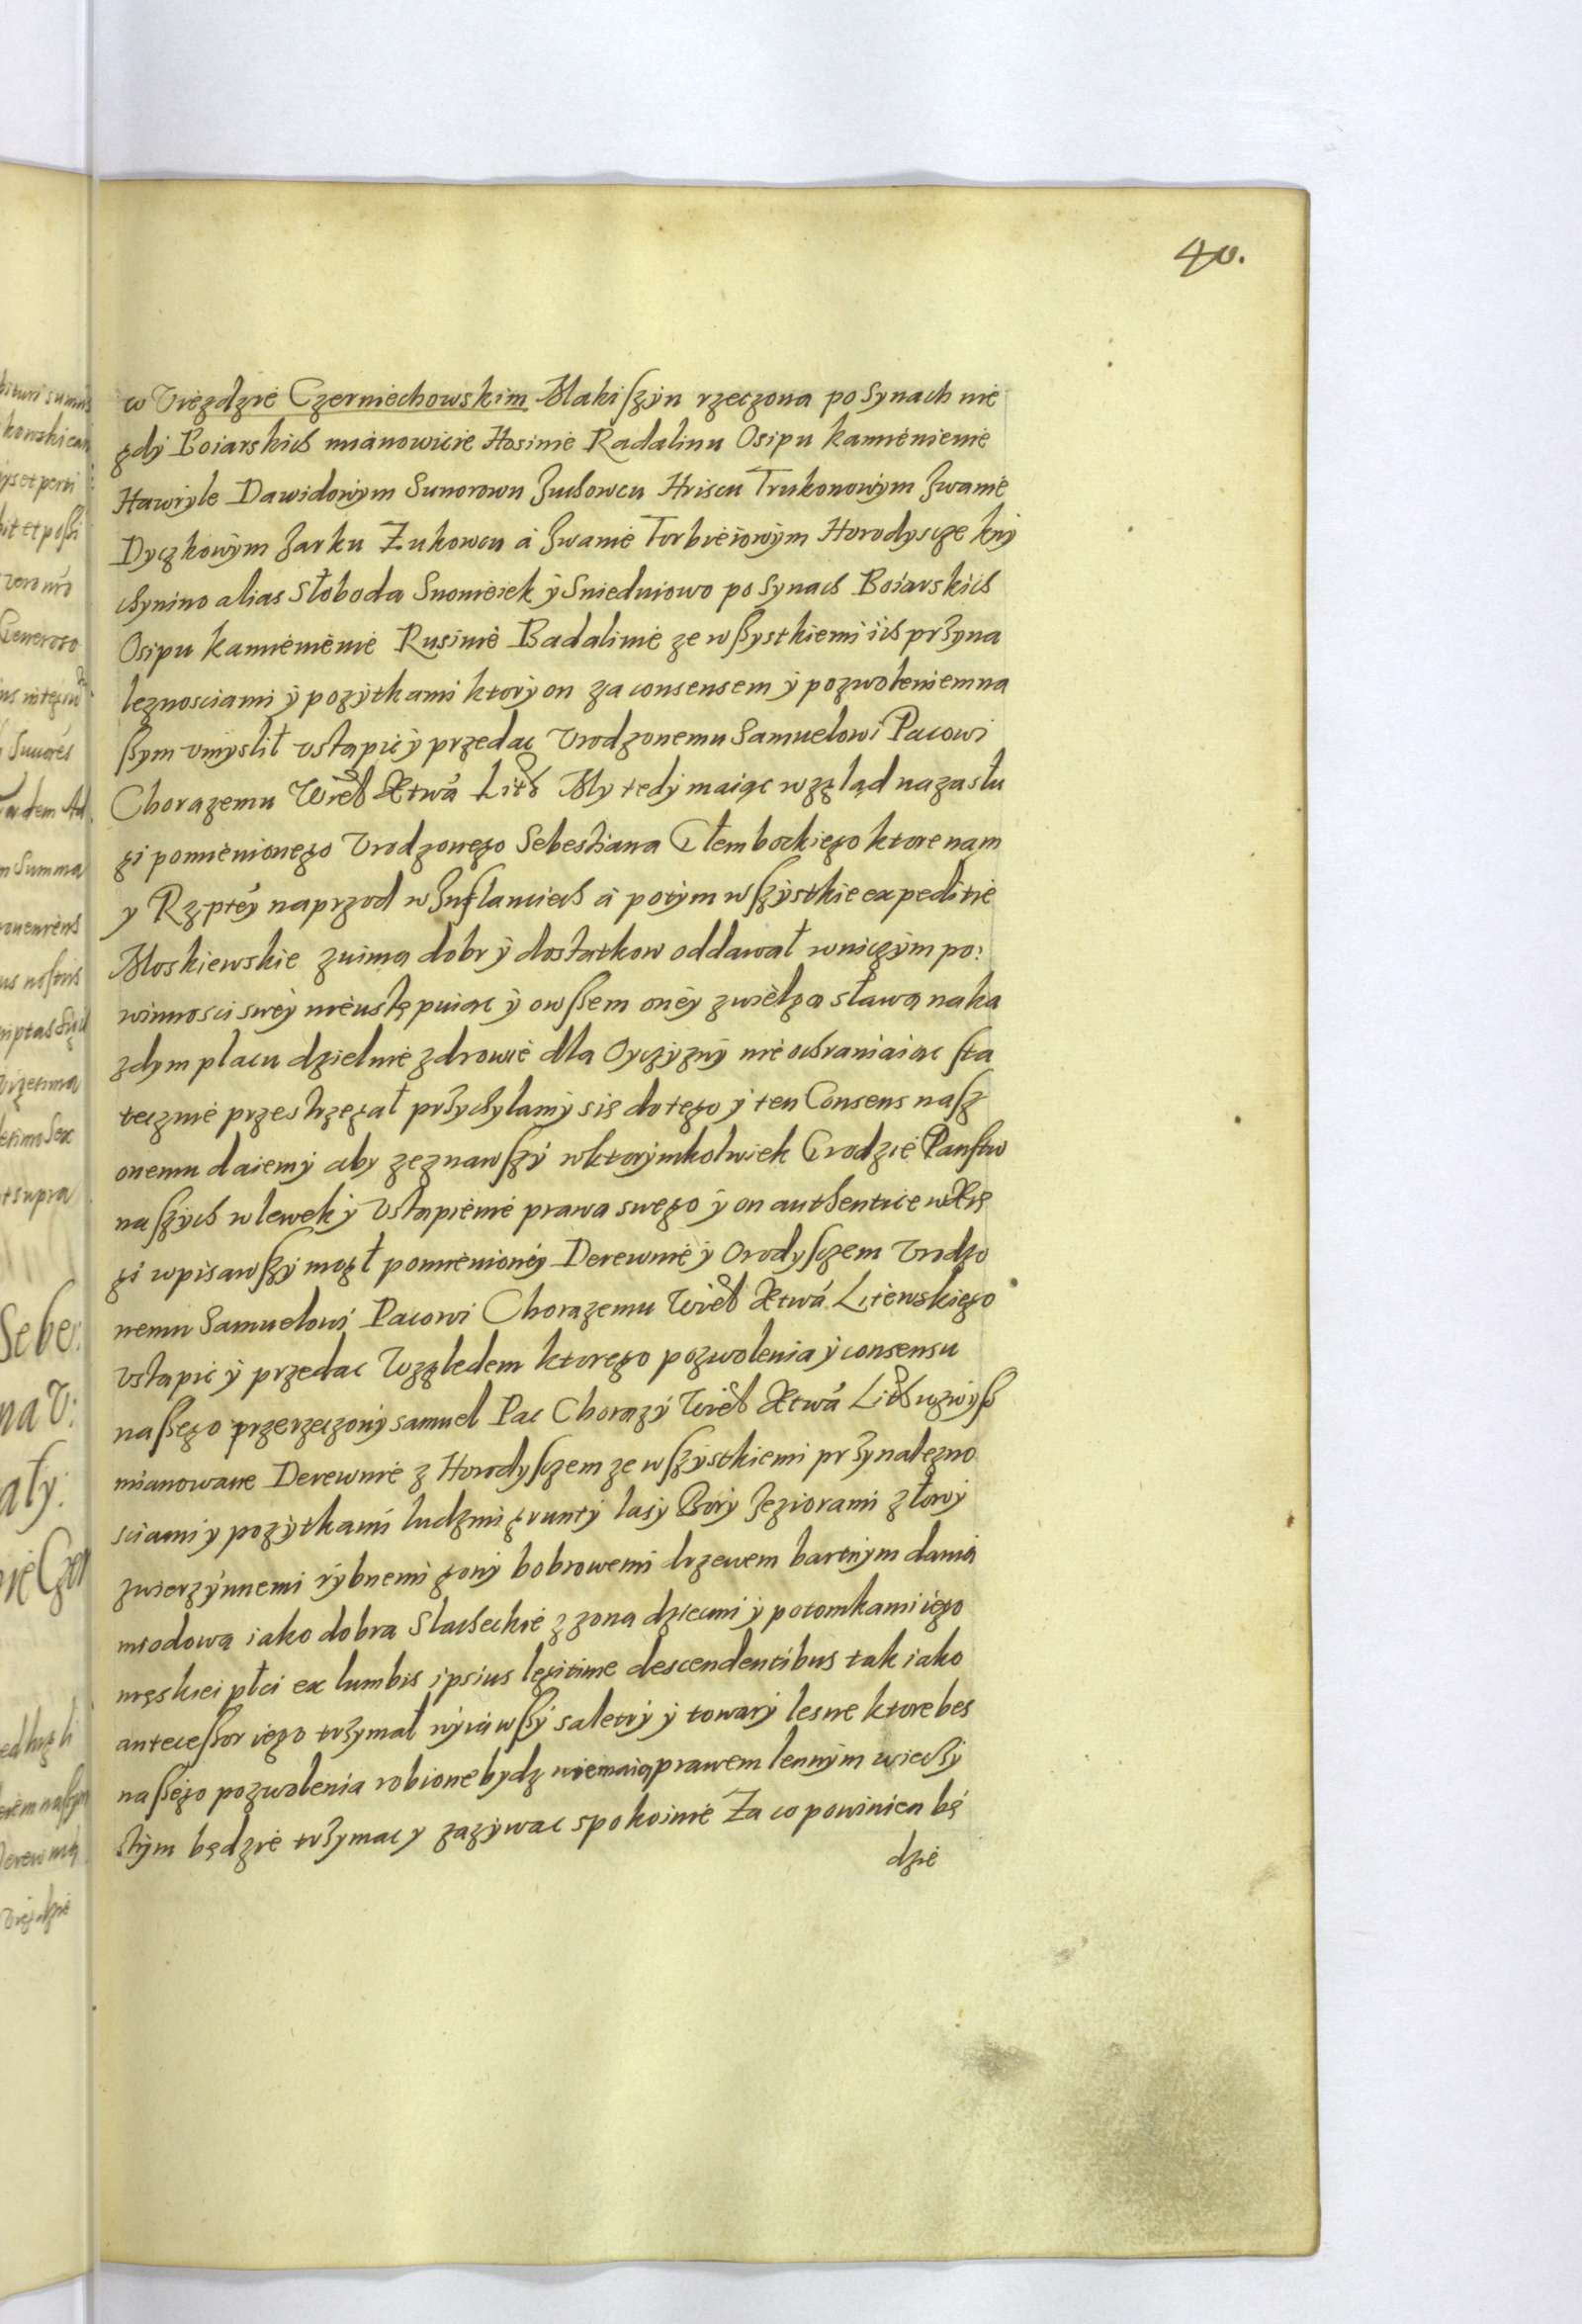 40.
w Uiezdzie Czerniechowskim Makiszyn rzeczona po Synach nie
gdy Boiarskich mianowicie Hosinie Radalinu Osipu kamienienie
Hawryle Dawidowym Sunorown Juchowcu Hriscu Trukonowym Jwanie
Dyczkowym Jarku Zukowcu á Jwanie Torbieiowym Horodyscze kny
chynino alias Słoboda Snoweiek y Sniedniowo po Synach Boiarskich
Osipu kamienienie Rusinie Badalinie ze wszystkiemi ich przyna
leznosciami y pozytkami ktory on za consensem y pozwoleniem na
szym umyslił ustapić y przedac Urodzonemu Samuelowi Pacowi
Chorazemu Wieł Xtwá Litº My tedy maiąc wzgląd na zasłu
gi pomienionego Urodzonego Sebestiana Głembockiego ktore nam
y Rzptey naprzod w Inflanciech á potym wszystkie expeditie
Moskiewskie znima dobr y dostatkow oddawał w niczym po:
winnosci swey nieustępuiac y owszem oney zwielga sławą na ka
zdym placu dzielnie zdrowie dla Oyczyzny nie ochraniaiac sta
tecznie przestrzegał przychylamy się do tego y ten Consens nasz
onemu daiemy aby zeznawszy w ktorymkolwiek Grodzie Panstw
naszych wlewek y Ustapienie prawa swego y on authentice w Xię
gi wpisawszy mogł pomienioney Derewnie y Orodyszem Urodzo
nemu Samuelowi Pacowi Chorazemu Wieł Xtwá Litewskiego
Ustapic y przedac Względem ktorego pozwolenia y consensu
naszego przerzeczony Samuel Pac Chorązy Wieł Xtwá Lit wzwysz
mianowane Derewnie z Horodyszem ze wszystkiemi przynalezno
sciami y pozytkami ludzmi grunty lasy Bory Jeziorami złowy
zwierzynnemi rybnemi gony bobrowemi drzewem bartnym danią
miodową iako dobra Slacheckie z zona dziecmi y potomkami iego
męskiei płci ex lumbis ipsius legitime descendentibus tak iako
antecessor iego trzymał wyiąwszy saletry y towary lesne ktore bes
naszego pozwolenia robione bydz niemaią prawem lennym wiechy
stym będzie trzymac y zazywac spokoinie Za co powinien bę
dzie